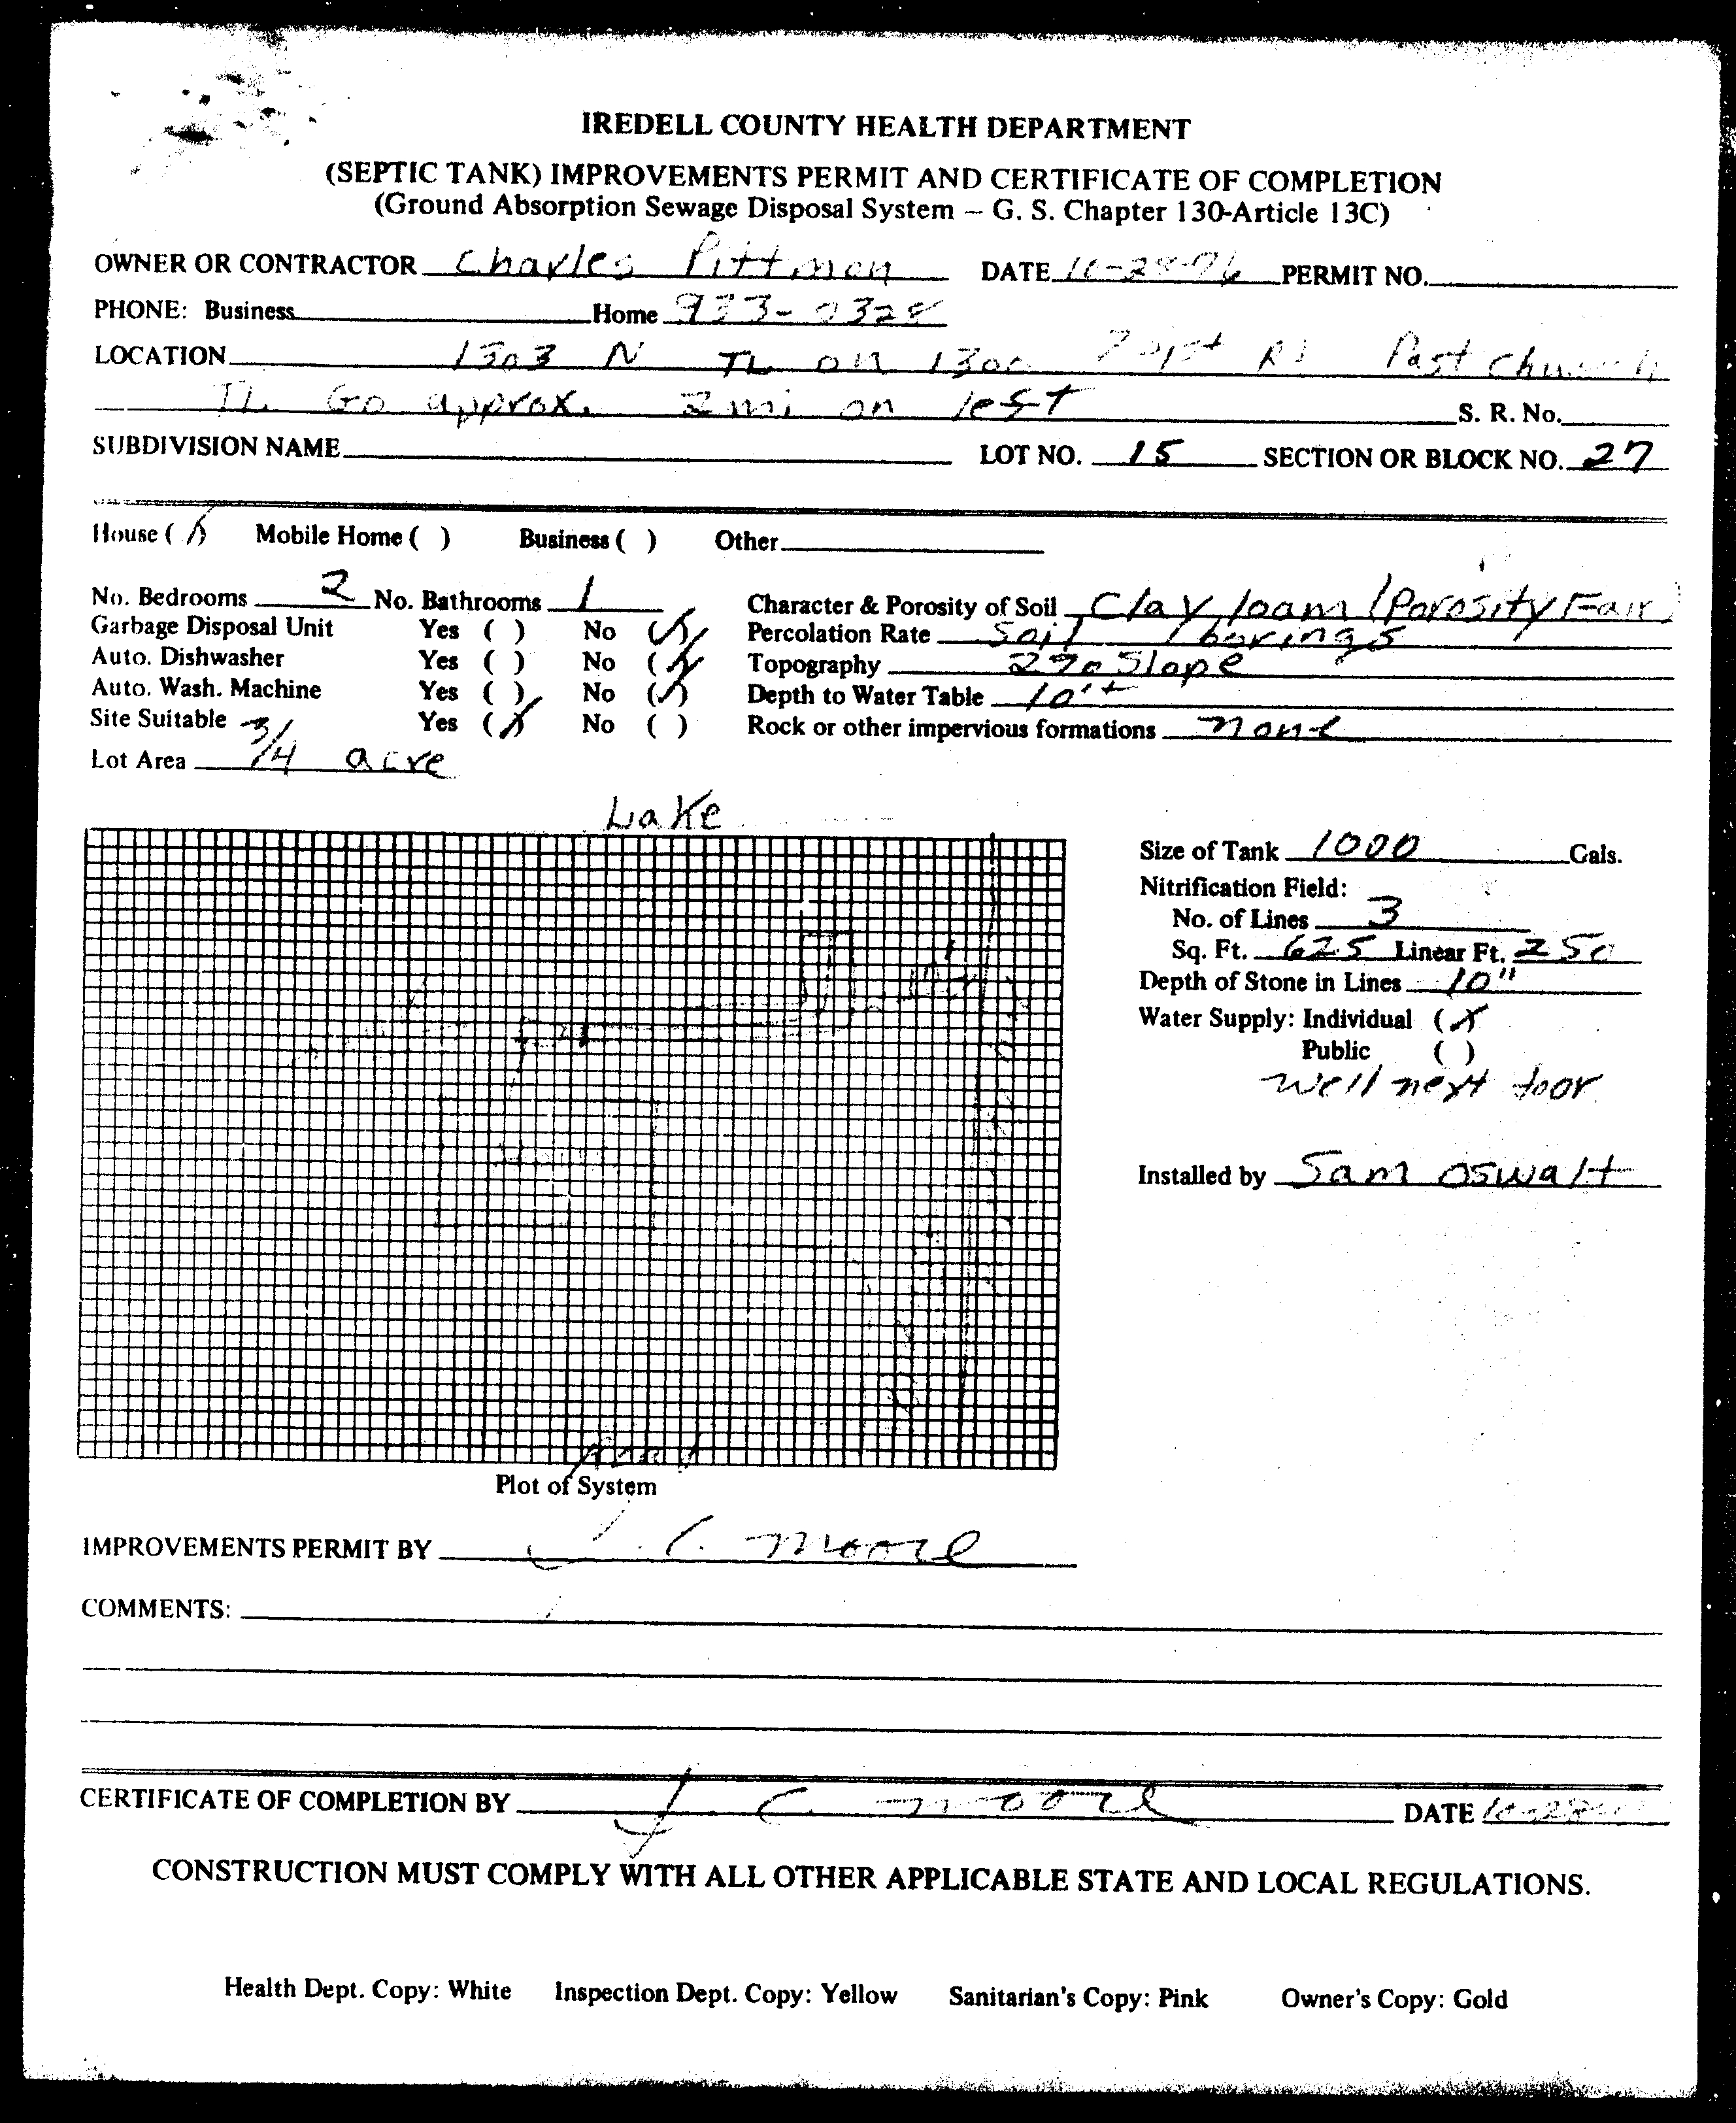 IREDELL COUNTY HEALTH DEPARTMENT
(SEPTIC TANK) IMPROVEMENTS PERMIT AND CERTIFICATE OF COMPLETION
(Ground Absorption Sewage Disposal System – G. S. Chapter 130-Article 13C)
OWNER OR CONTRACTOR Charles Pittman DATE 10-28-76 PERMIT NO.
PHONE: Business Home 933-0328
LOCATION 1303 N TL on 1300 Past Church
TL Go approx. 2 mi on left S. R. No.
SUBDIVISION NAME LOT NO. 15 SECTION OR BLOCK NO. 27
House (X) Mobile Home ( ) Business ( ) Other
No. Bedrooms 2 No. Bathrooms 1 Character & Porosity of Soil Clay loam (Porosity Fair)
Garbage Disposal Unit Yes ( ) No (X) Percolation Rate Soil borings
Auto. Dishwasher Yes ( ) No (X) Topography 2% Slope
Auto. Wash. Machine Yes ( ) No (X) Depth to Water Table 10'+
Site Suitable Yes (X) No ( ) Rock or other impervious formations none
Lot Area 3/4 acre
Lake
Size of Tank 1000 Gals.
Nitrification Field:
No. of Lines 3
Sq. Ft. 625 Linear Ft. 250
Depth of Stone in Lines 10"
Water Supply: Individual (X)
Public ( )
Well next door
Installed by Sam Oswalt
Road
Plot of System
IMPROVEMENTS PERMIT BY J. C. Moore
COMMENTS:
CERTIFICATE OF COMPLETION BY J C Moore DATE 10-28
CONSTRUCTION MUST COMPLY WITH ALL OTHER APPLICABLE STATE AND LOCAL REGULATIONS.
Health Dept. Copy: White Inspection Dept. Copy: Yellow Sanitarian's Copy: Pink Owner's Copy: Gold